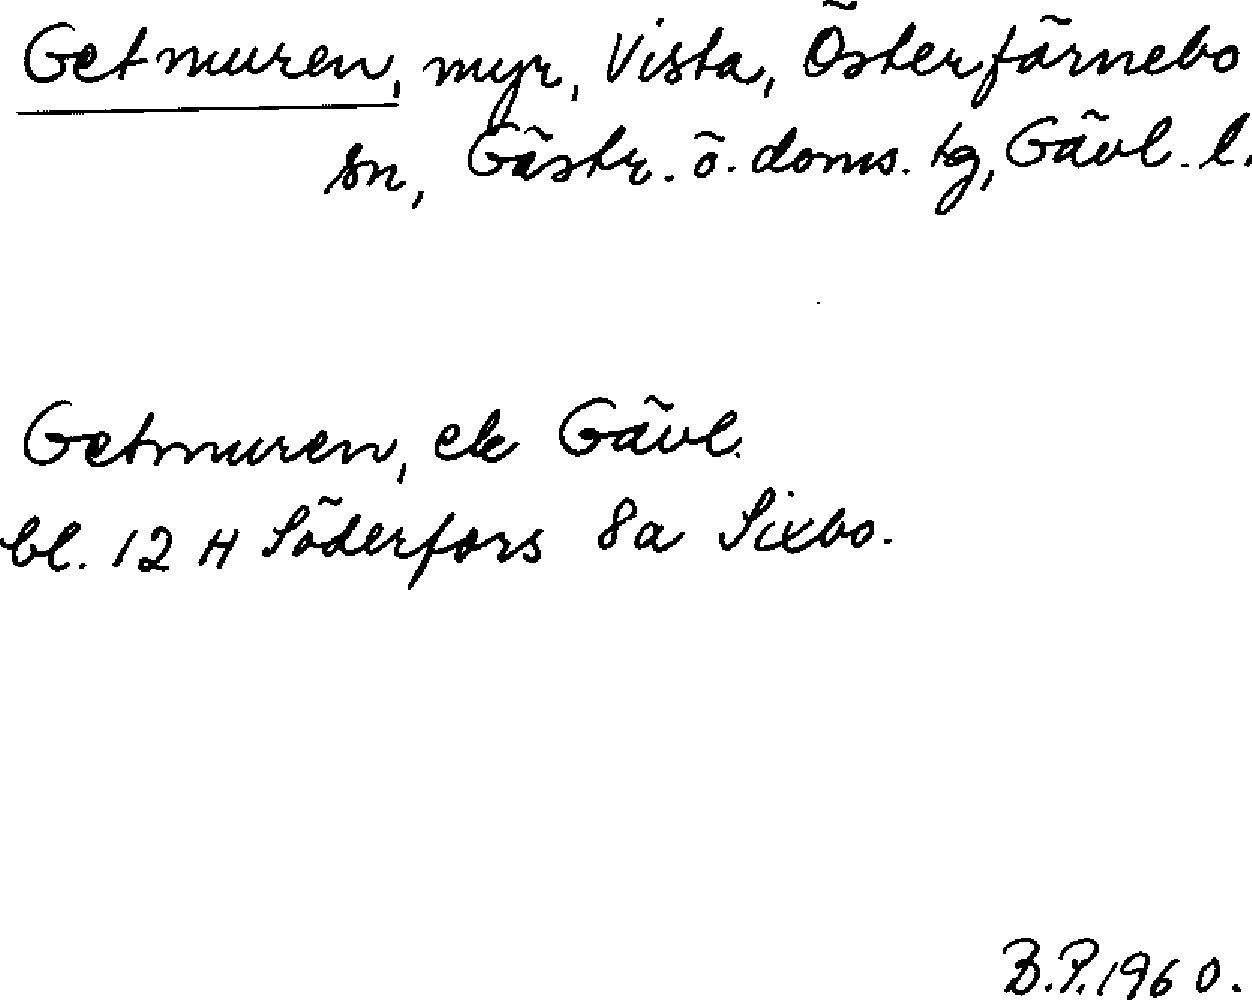 Getmuren, myr, Vista, Österfärnebo
sn, Gästr. ö. doms. tg, Gävl. l.
Getmuren, ek Gävl.
bl. 12 H Söderfors 8a Sixbo.
B.P. 1960.